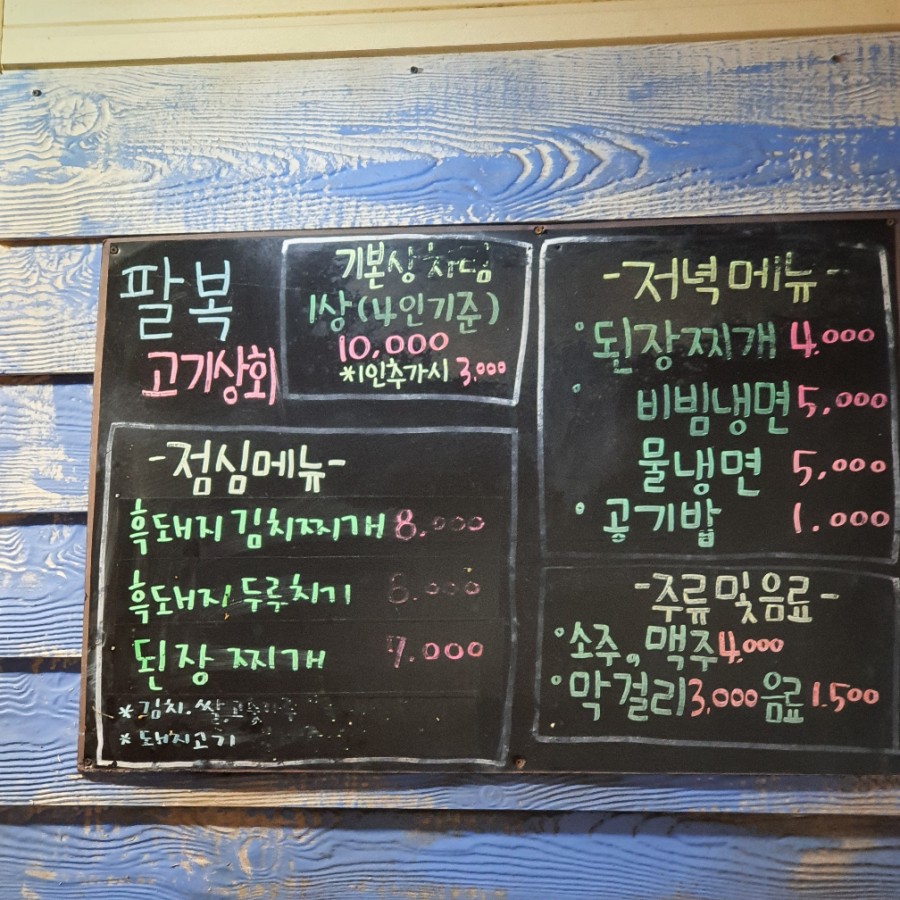 팔복
고기상회
기본상차림
1상(4인기준)
10,000
*1인추가시 3,000
-점심메뉴-
흑돼지김치찌개 8.000
흑돼지두루치기 .000
된장찌개 7.000
*김치.쌀.고춧가루
*돼지고기
-저녁메뉴-
°된장찌개 4.000
°비빔냉면 5,000
물냉면 5,000
°공기밥 1.000
-주류및음료-
°소주,맥주 4.000
°막걸리 3,000 음료 1.500